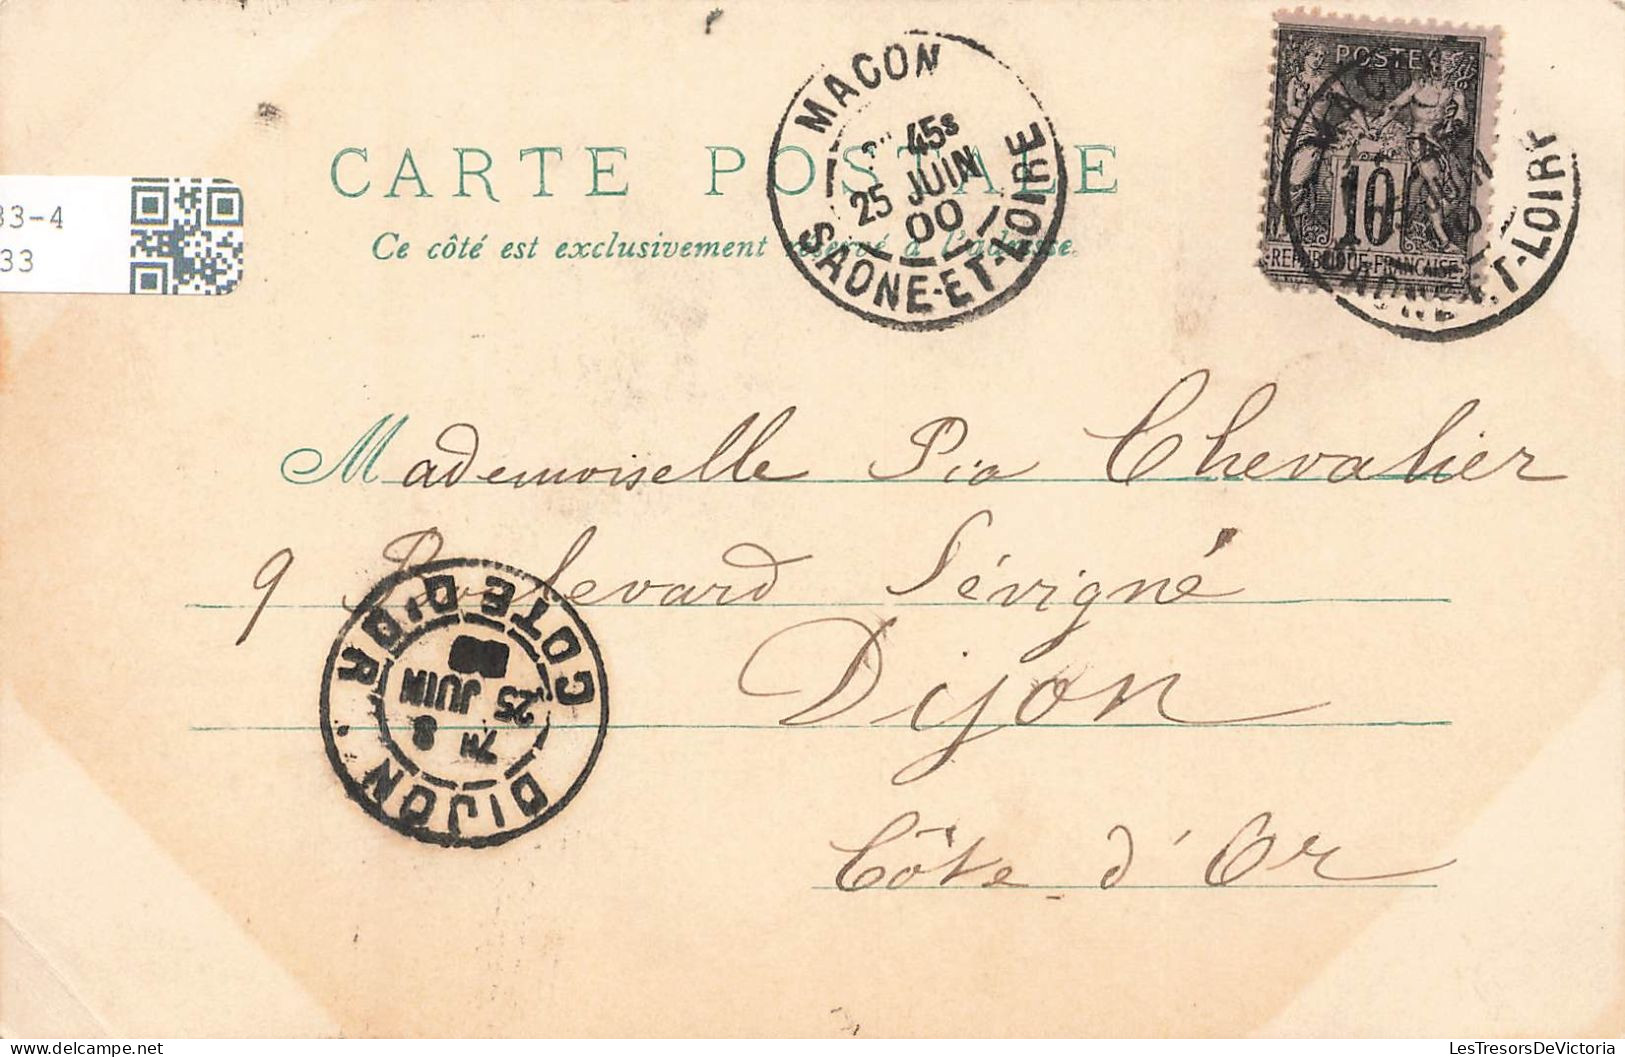 MACON
45s
25 JUIN
00
SAONE-ET-LOIRE
POSTE
10
REPUBLIQUE FRANÇAISE
ET-LOIRE
CARTE POSTALE
Ce côté est exclusivement réservé à l'adresse.
33-4
33
Mademoiselle Pia Chevalier
9 Boulevard Sévigné
Dijon
Côte d'Or
DIJON
7H 8
25 JUIN
COTE D'OR
LesTresorsDeVictoria